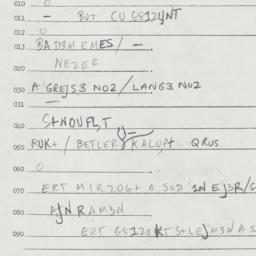 010 0
011 – BUT CU GS12YNT
012 0
013 BAD3M EMES/ –
020 NEZER
030 A GREJS3 NO2 / LANG3 NO2
031 –
040 S+NOUFL,T
050 AUK+ / BETLER KALUP+ QRUS
060 0
070 ERT MIRZOG+ A SOD 1N EJ3R/G
080 AJN RAM3N
090 ERT GS120KT S+LEJM3N A S